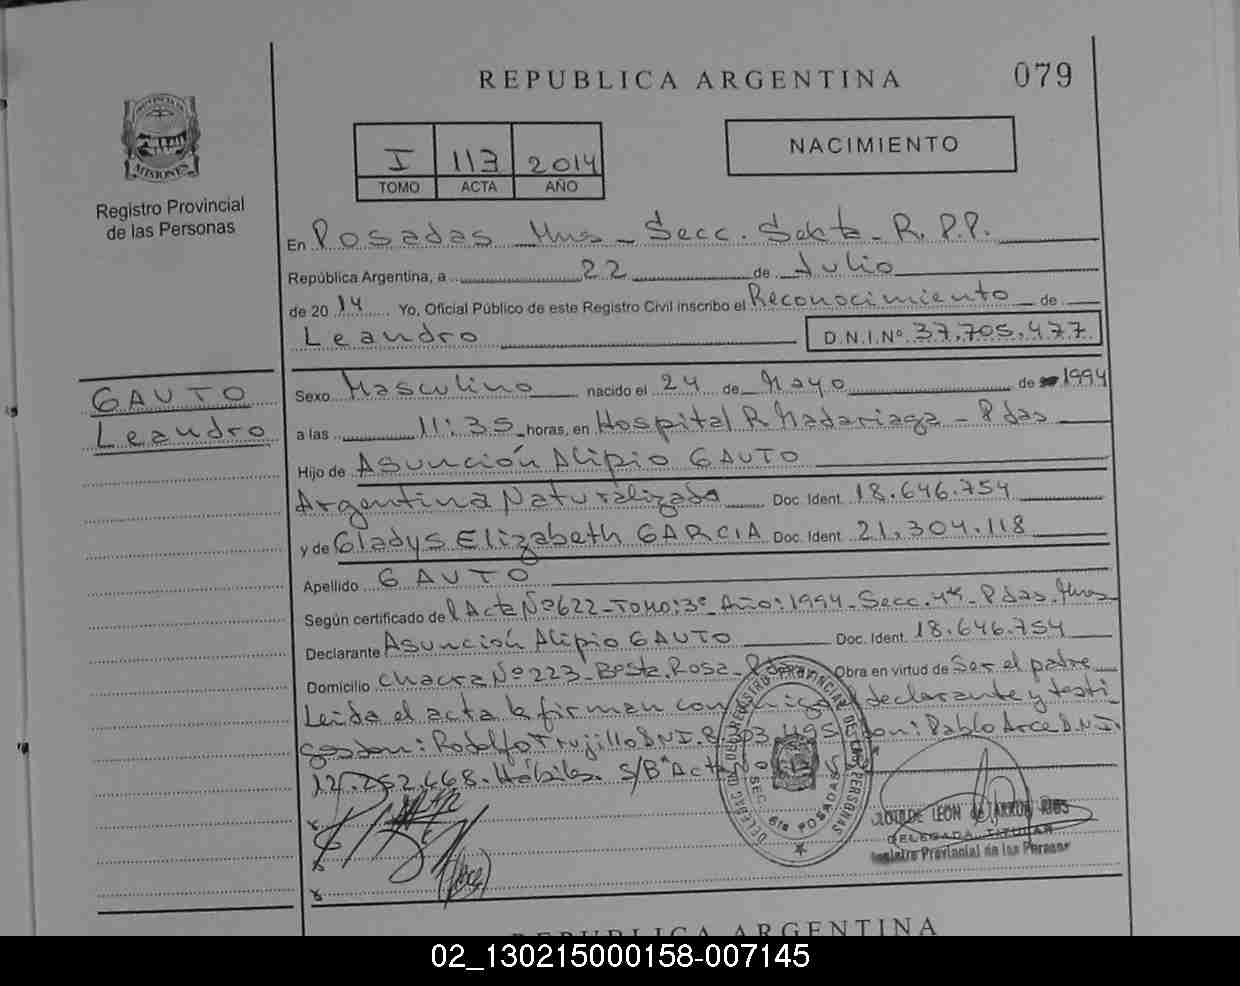 REPUBLICA ARGENTINA
079
PROVINCIA DE
MISIONES
Registro Provincial
de las Personas
I 113 2014
TOMO ACTA AÑO
NACIMIENTO
En Posadas Mns - Secc. Sexta - R.P.P.
República Argentina, a 22 de Julio
de 2014 Yo, Oficial Público de este Registro Civil inscribo el Reconocimiento de
Leandro D.N.I.Nº 37.705.477
GAUTO
Leandro
Sexo Masculino nacido el 24 de Mayo de 1994
a las 11:35 horas, en Hospital R. Madariaga - Pdas
Hijo de Asunción Alipio GAUTO
Argentina Naturalizado Doc. Ident. 18.646.754
y de Gladys Elizabeth GARCIA Doc. Ident. 21.304.118
Apellido GAUTO
Según certificado de l Acta Nº 622 - Tomo: 3º - Año: 1994 - Secc. 4ta - Pdas. Mns
Declarante Asunción Alipio GAUTO Doc. Ident. 18.646.754
Domicilio Chacra Nº 223 - Bo Sta. Rosa - Obra en virtud de Ser el padre
Leida el acta la firman declarante y testi
gos don: Rodolfo Trujillo D.N.I. don: Pablo Arce D.N.I.
12.252.668. Hábiles. S/B Acta
DELEG. DEL REGISTRO PROVINCIAL DE LAS PERSONAS
SEC. 6ta POSADAS
DE LEON de
DELEGADA TITULAR
Registro Provincial de las Personas
REPUBLICA ARGENTINA
02_130215000158-007145